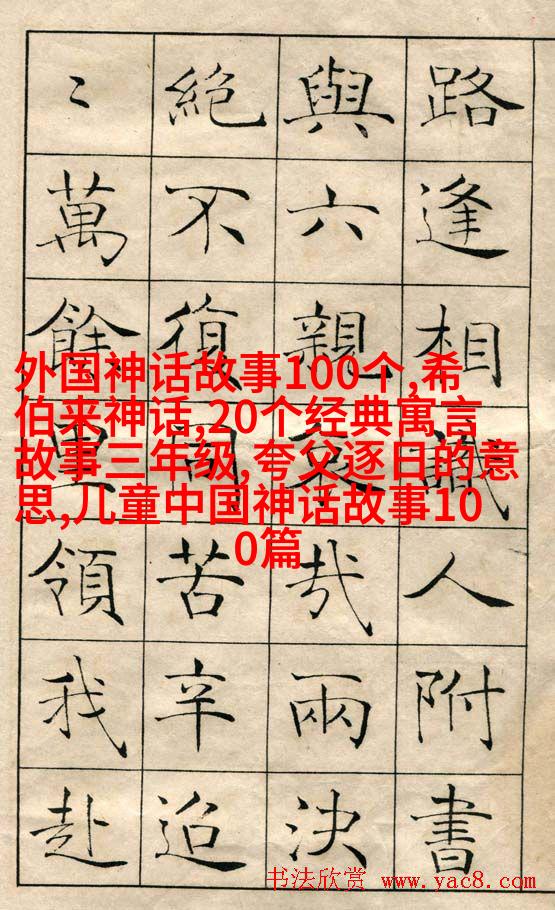 路逢相識人附書
與六親哀哉兩決
絕不復同苦辛迢
〻萬餘里領我赴
外国神话故事100个,希
伯来神话,20个经典寓言
故事三年级,夸父逐日的意
思,儿童中国神话故事10
0篇
书法欣赏 www.yac8.com